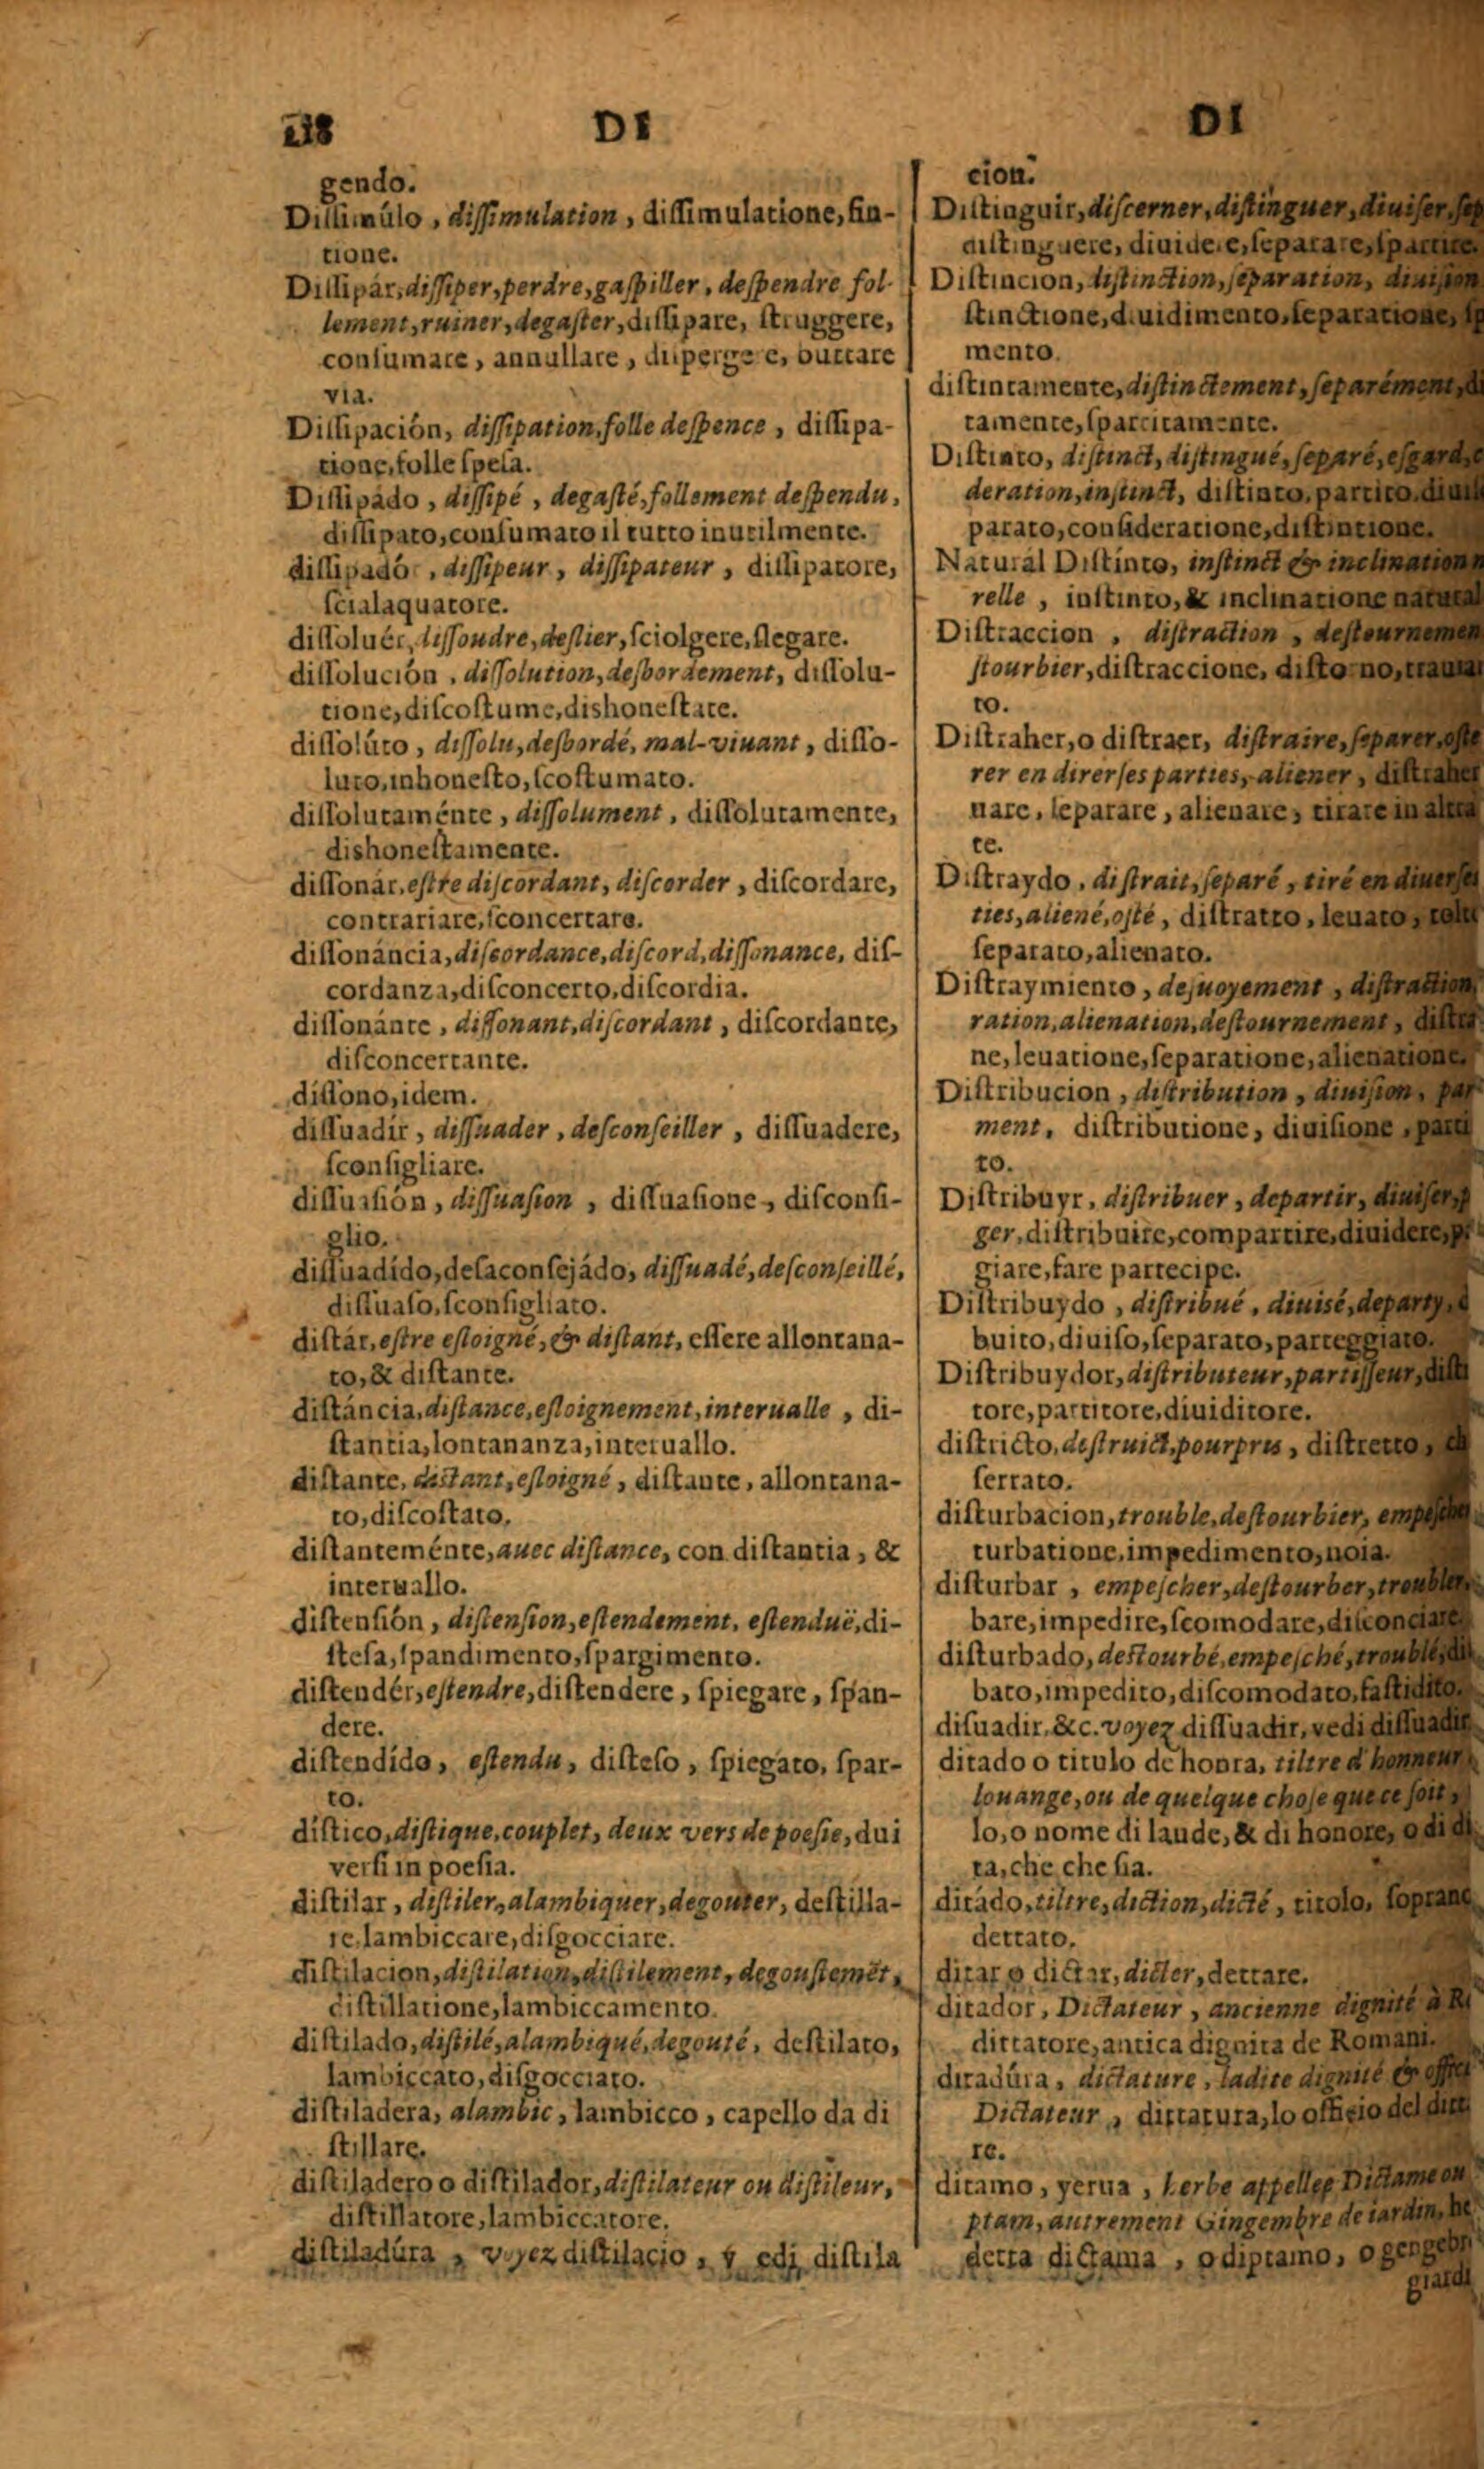 DI
gendo.
Diſſimúlo, diſſimulation, diſſimulatione, fin-
tione.
Diſſipár, diſſiper, perdre, gaſpiller, deſpendre fol-
lement, ruiner, degaſter, diſſipare, ſtruggere,
conſumare, annullare, diſpergere, buttare
via.
Diſſipación, diſſipation, folle deſpence, diſſipa-
tione, folle ſpeſa.
Diſſipádo, diſſipé, degaſté, follement deſpendu,
diſſipato, conſumato il tutto inutilmente.
diſſipadór, diſſipeur, diſſipateur, diſſipatore,
ſcialaquatore.
diſſoluér, diſſoudre, deſlier, ſciolgere, ſlegare.
diſſolución, diſſolution, deſbordement, diſſolu-
tione, diſcoſtume, dishoneſtate.
diſſolúto, diſſolu, deſbordé, mal-viuant, diſſo-
luto, inhoneſto, ſcoſtumato.
diſſolutaménte, diſſolument, diſſolutamente,
dishoneſtamente.
diſſonár, eſtre diſcordant, diſcorder, diſcordare,
contrariare, ſconcertare.
diſſonáncia, diſcordance, diſcord, diſſonance, diſ-
cordanza, diſconcerto, diſcordia.
diſſonánte, diſſonant, diſcordant, diſcordante,
diſconcertante.
díſſono, idem.
diſſuadír, diſſuader, deſconſeiller, diſſuadere,
ſconſigliare.
diſſuaſión, diſſuaſion, diſſuaſione, diſconſi-
glio.
diſſuadído, deſaconſejádo, diſſuadé, deſconſeillé,
diſſuaſo, ſconſigliato.
diſtár, eſtre eſloigné, & diſtant, eſſere allontana-
to, & diſtante.
diſtáncia, diſtance, eſloignement, interualle, di-
ſtantia, lontananza, interuallo.
diſtante, diſtant, eſloigné, diſtante, allontana-
to, diſcoſtato.
diſtanteménte, auec diſtance, con diſtantia, &
interuallo.
diſtenſión, diſtenſion, eſtendement, eſtenduë, di-
ſteſa, ſpandimento, ſpargimento.
diſtendér, eſtendre, diſtendere, ſpiegare, ſpan-
dere.
diſtendído, eſtendu, diſteſo, ſpiegato, ſpar-
to.
díſtico, diſtique, couplet, deux vers de poeſie, dui
verſi in poeſia.
diſtilar, diſtiler, alambiquer, degouter, deſtilla-
re, lambiccare, diſgocciare.
diſtilacion, diſtilation, diſtilement, degouſtemēt,
diſtillatione, lambiccamento.
diſtilado, diſtilé, alambiqué, degouté, deſtilato,
lambiccato, diſgocciato.
diſtiladera, alambic, lambicco, capello da di
ſtillare.
diſtiladero o diſtilador, diſtilateur ou diſtileur,
diſtillatore, lambiccatore.
diſtiladúra, voyez diſtilacio, vedi diſtila
DI
cion.
Diſtinguir, diſcerner, diſtinguer, diuiſer, ſep
diſtinguere, diuidere, ſeparare, ſpartire.
Diſtincion, diſtinction, ſeparation, diuiſion
ſtinctione, diuidimento, ſeparatione, ſp
mento.
diſtintamente, diſtinctement, ſeparément, di
tamente, ſpartitamente.
Diſtinto, diſtinct, diſtingué, ſeparé, eſgard, c
deration, inſtinct, diſtinto, partito, diuiſ
parato, conſideratione, diſtintione.
Naturál Diſtínto, inſtinct & inclination n
relle, inſtinto, & inclinatione natural
Diſtraccion, diſtraction, deſtournemen
ſtourbier, diſtraccione, diſtorno, trauia
to.
Diſtraher, o diſtraer, diſtraire, ſeparer, oſte
rer en direrſes parties, aliener, diſtraher
uare, ſeparare, alienare, tirare in altra
te.
Diſtraydo, diſtrait, ſeparé, tiré en diuerſes
ties, aliené, oſté, diſtratto, leuato, tolt
ſeparato, alienato.
Diſtraymiento, deſuoyement, diſtraction,
ration, alienation, deſtournement, diſtra
ne, leuatione, ſeparatione, alienatione.
Diſtribucion, diſtribution, diuiſion, par
ment, diſtributione, diuiſione, parti
to.
Diſtribuyr, diſtribuer, departir, diuiſer, p
ger, diſtribuire, compartire, diuidere, p
giare, fare partecipe.
Diſtribuydo, diſtribué, diuisé, departy,
buito, diuiſo, ſeparato, parteggiato.
Diſtribuydor, diſtributeur, partiſſeur, diſti
tore, partitore, diuiditore.
diſtricto, deſtruict, pourpris, diſtretto,
ſerrato.
diſturbacion, trouble, deſtourbier, empeſche
turbatione, impedimento, noia.
diſturbar, empeſcher, deſtourber, troubler,
bare, impedire, ſcomodare, diſconciare.
diſturbado, deſtourbé, empeſché, troublé, di
bato, impedito, diſcomodato, faſtidito.
diſuadir, &c. voyez diſſuadir, vedi diſſuadir
ditado o titulo de honra, tiltre d'honneur
louange, ou de quelque choſe que ce ſoit,
lo, o nome di laude, & di honore, o di di
ta, che che ſia.
ditádo, tiltre, diction, dicté, titolo, ſoprano
dettato.
ditar o dictar, dicter, dettare.
ditador, Dictateur, ancienne dignité à R
dittatore, antica dignita de Romani.
ditadúra, dictature, ladite dignité & offici
Dictateur, dittatura, lo officio del ditt
re.
ditamo, yerua, herbe appellee Dictame ou
ptam, autrement Gingembre de iardin, he
detta dictama, o diptamo, o gengebr
giardi